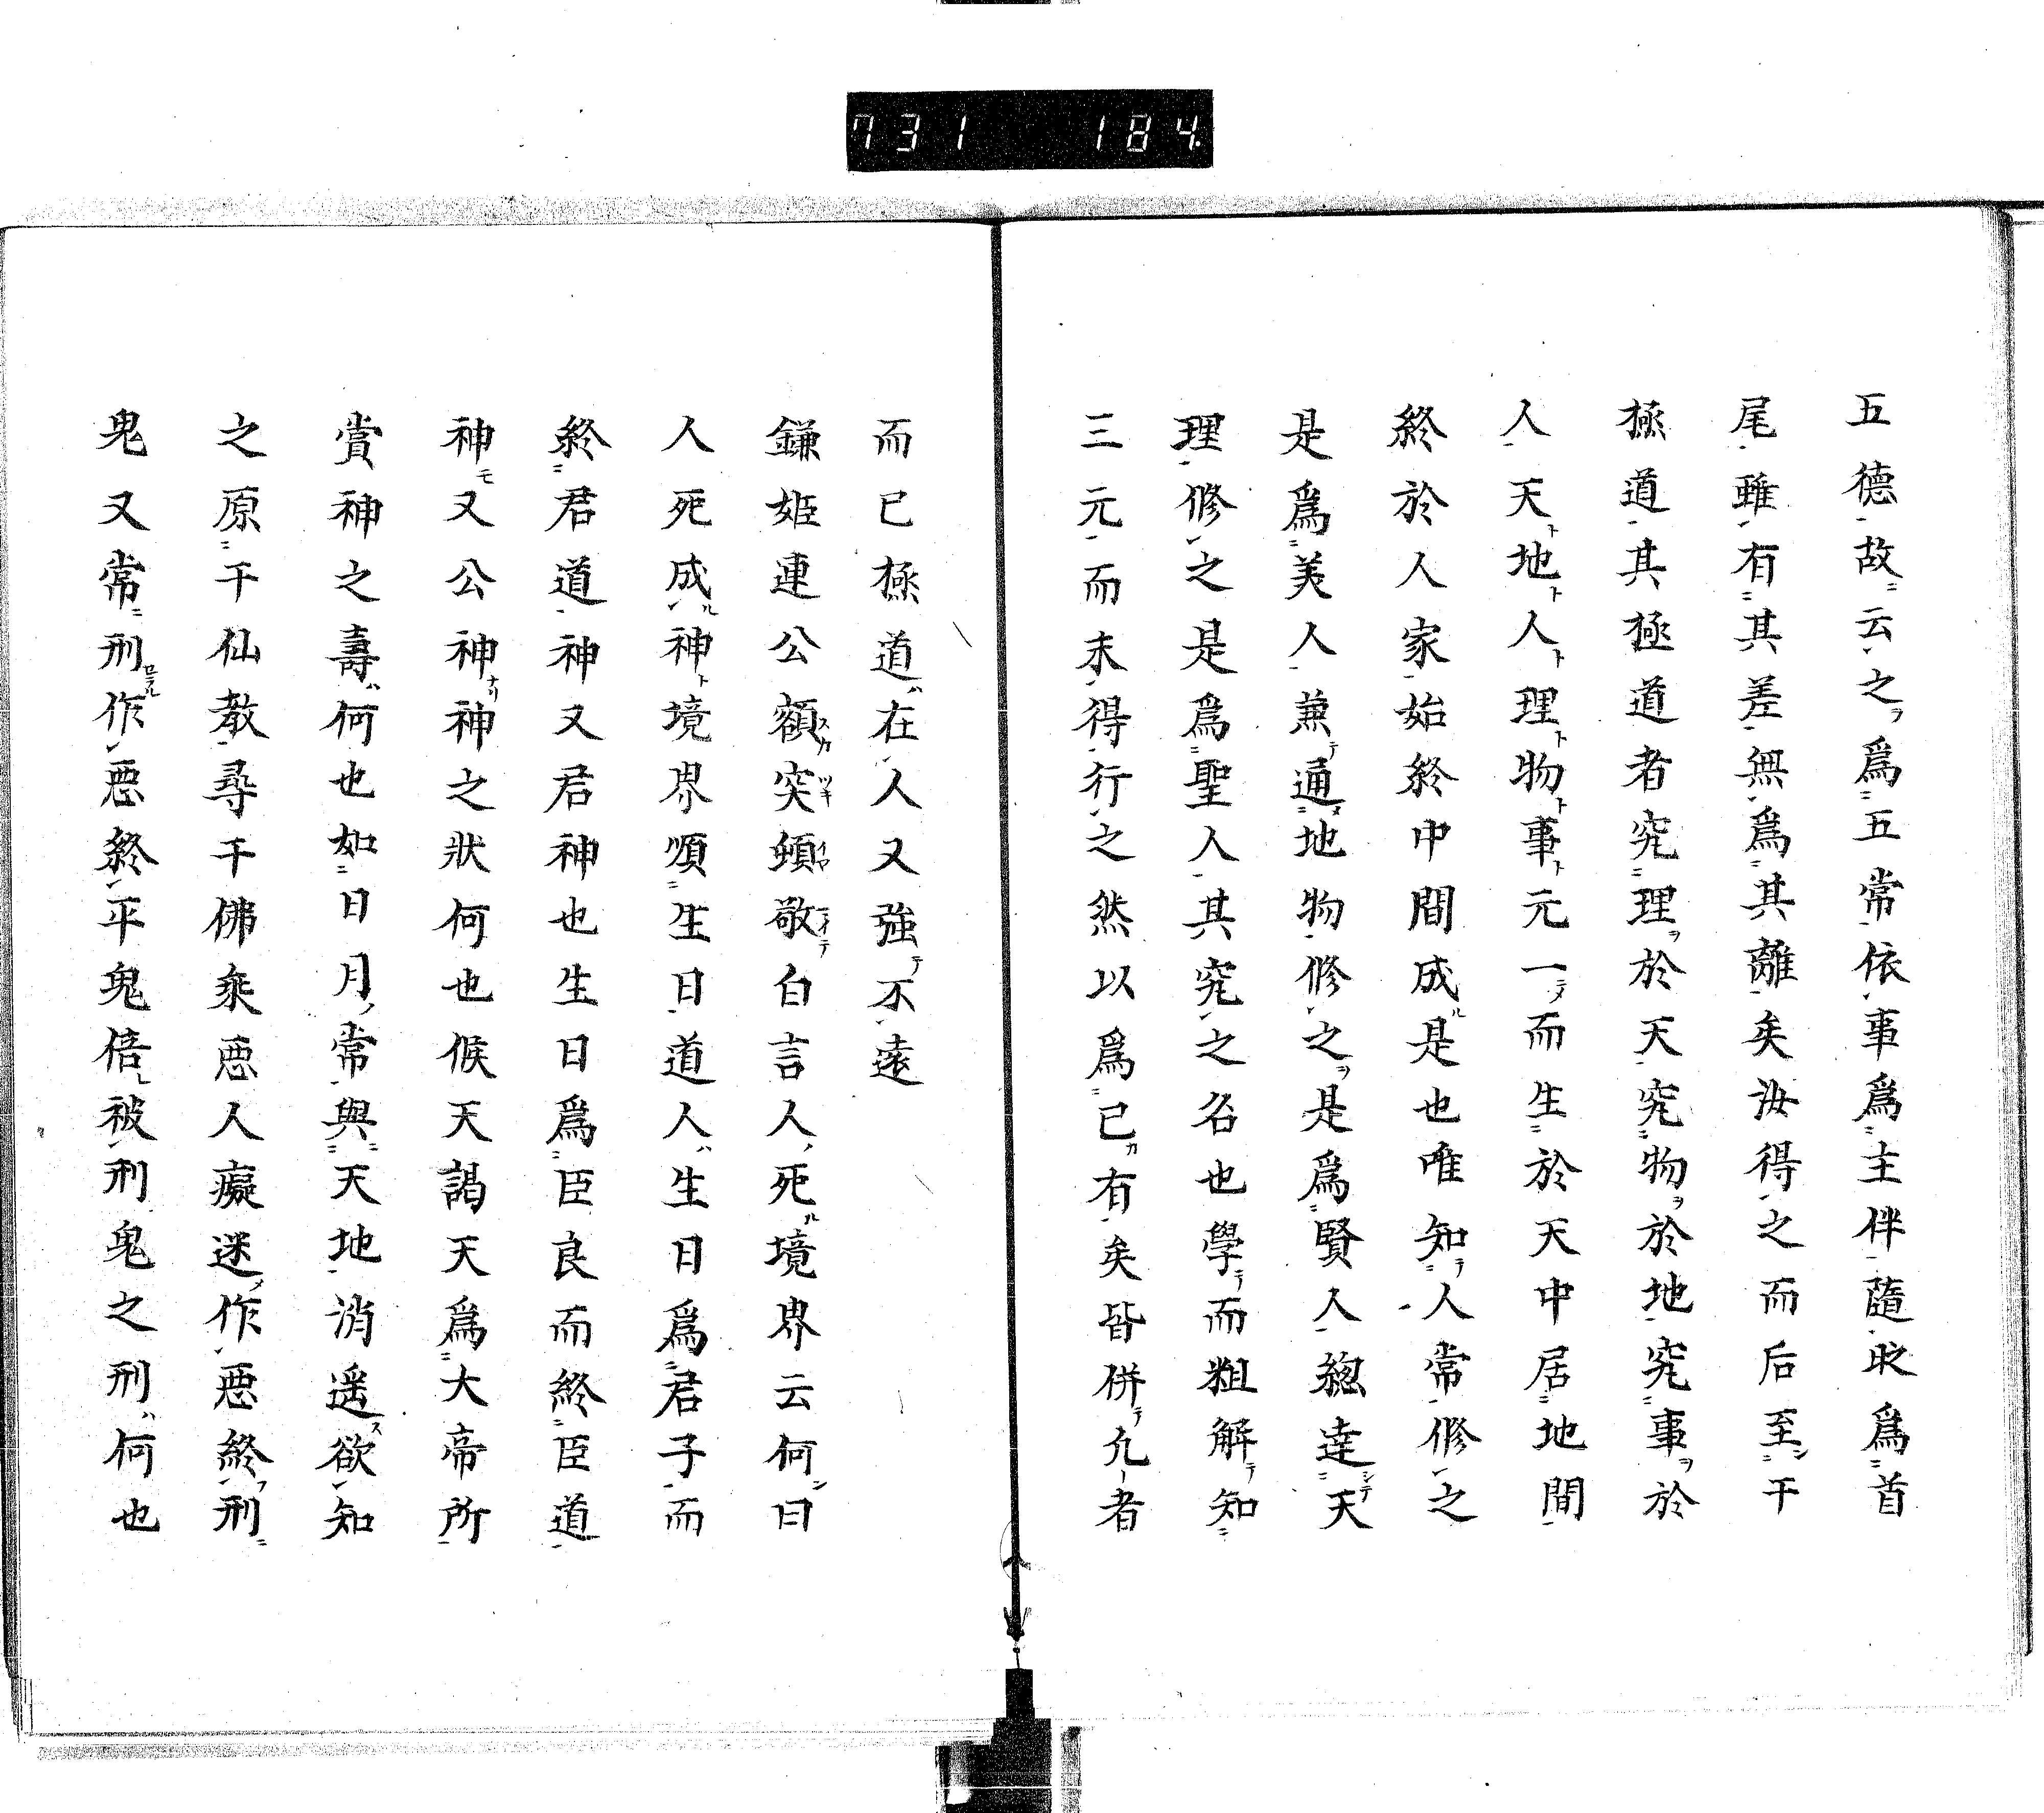 731 184
五德故云之爲五常依事爲主伴隨政爲首
尾雖有其差無爲其離矣汝得之而后至干
極道其極道者究理於天究物於地究事於
人天地人理物事元一而生於天中居地間
終於人家始終中間成是也唯知人常修之
是爲美人兼通地物修之是爲賢人總達天
理修之是爲聖人其究之名也學而粗解知
三元而末得行之然以爲已有矣皆併凢者
而已極道在人又強不遠
鎌姬連公額突傾敬白言人死境界云何曰
人死成神境界順生日道人生日爲君子而
終君道神又君神也生日爲臣良而終臣道
神又公神神之狀何也候天謁天爲大帝所
賞神之壽何也如日月常與天地消遥欲知
之原干仙教尋千佛乘惡人癡迷作惡終刑
鬼又常刑作惡終平鬼倍被刑鬼之刑何也